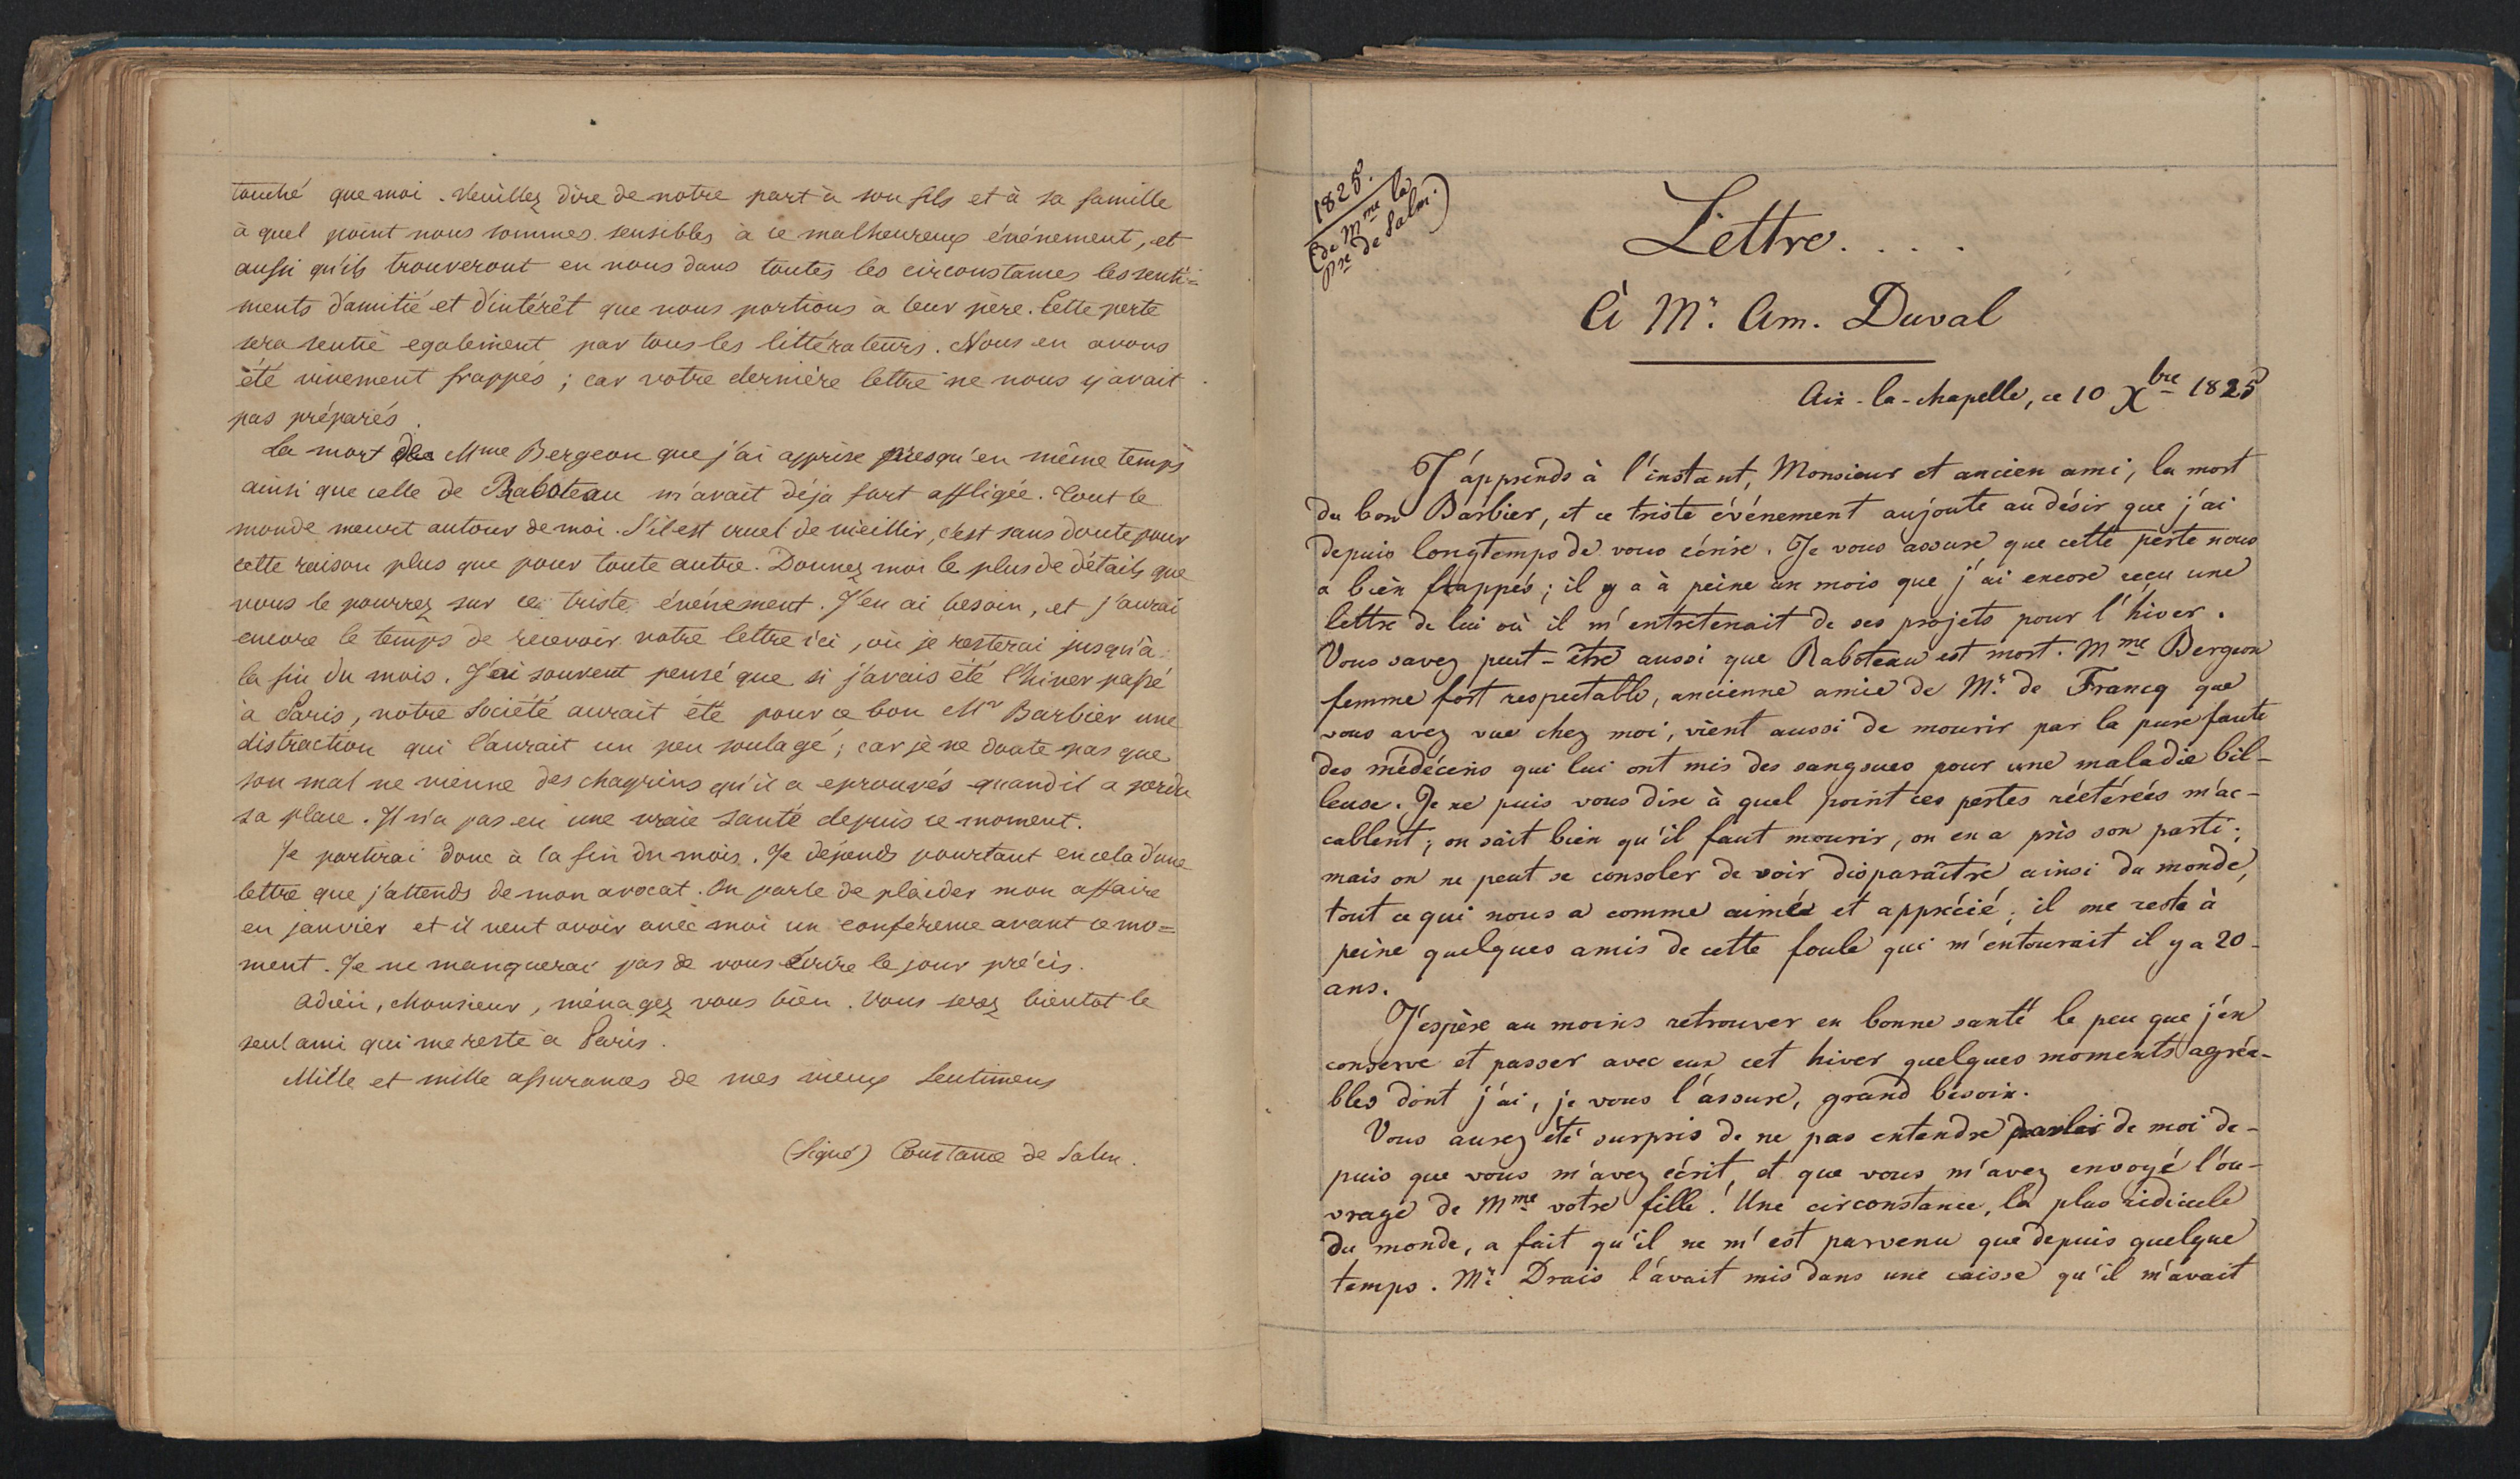 touché que moi. Veuillez dire de notre part à son fils et à sa famille
à quel point nous sommes sensibles à ce malheureux événement, et
aussi qu'ils trouveront en nous dans toutes les circonstances les senti=
ments d'amitié et d'intérêt que nous portions à leur père. Cette perte
sera sentie egalement par tous les littérateurs. Nous en avons
été vivement frappés ; car votre dernière lettre ne nous y avait
pas préparés.
La mort de Mme Bergeon que j'ai apprise presqu'en même temps
ainsi que celle de Raboteau m'avait déja fort affligée. Tout le
monde meurt autour de moi. S'il est cruel de vieillir, c'est sans doute pour
cette raison plus que pour toute autre. Donnez moi le plus de détails que
vous le pourrez sur ce triste événement. J'en ai besoin, et j'aurai
encore le temps de recevoir votre lettre ici, où je resterai jusqu'à
la fin du mois. J'ai souvent pensé que si j'avais été l'hiver passé
à Paris, notre Société aurait été pour ce bon Mr Barbier une
distraction qui l'aurait un peu soulagé ; car je ne doute pas que
son mal ne vienne des chagrins qu'il a eprouvés quand il a perdu
sa place. Il n'a pas eu une vraie santé depuis ce moment.
Je partirai donc à la fin du mois. Je dépends pourtant en cela d'une
lettre que j'attends de mon avocat. On parle de plaider mon affaire
en janvier et il veut avoir avec moi un conférence avant ce mo=
ment. Je ne manquerai pas de vous écrire le jour précis.
Adieu, Monsieur, ménagez vous bien. Vous serez bientot le
seul ami qui me reste à Paris.
Mille et mille assurances de mes vieux sentimens
(Signé) Constance de Salm.
1825.
(de Mme la
Pse de Salm.)
Lettre. . . .
À Mr. Am. Duval
Aix-la-chapelle, ce 10 Xbre 1825
J'apprends à l'instant, Monsieur et ancien ami, la mort
du bon Barbier, et ce triste événement aujoute au désir que j'ai
depuis longtemps de vous écrire. Je vous assure que cette perte nous
a bien frappés ; il y a à peine un mois que j'ai encore reçu une
lettre de lui où il m'entretenait de ses projets pour l'hiver.
Vous savez peut-être aussi que Raboteau est mort. Mme Bergeon
femme fort respectable, ancienne amie de Mr. de Francq que
vous avez vue chez moi, vient aussi de mourir par la pure faute
des médécins qui lui ont mis des sangsues pour une maladie bil-
leuse. Je ne puis vous dire à quel point ces pertes réitérées m'ac-
cablent ; on sait bien qu'il faut mourir, on en a pris son parti ;
mais on ne peut se consoler de voir disparaître ainsi du monde,
tout ce qui nous a comme aimée et apprécié ; il me reste à
peine quelques amis de cette foule qui m'entourait il y a 20
ans.
J'espère au moins retrouver en bonne santé le peu que j'en
conserve et passer avec eux cet hiver quelques moments agréa-
bles dont j'ai, je vous l'assure, grand besoin.
Vous aurez été surpris de ne pas entendre parler de moi de-
puis que vous m'avez écrit, et que vous m'avez envoyé l'ou-
vrage de Mme votre fille ! Une circonstance, la plus ridicule
du monde, a fait qu'il ne m'est parvenu que depuis quelque
temps. Mr. Drais l'avait mis dans une caisse qu'il m'avait